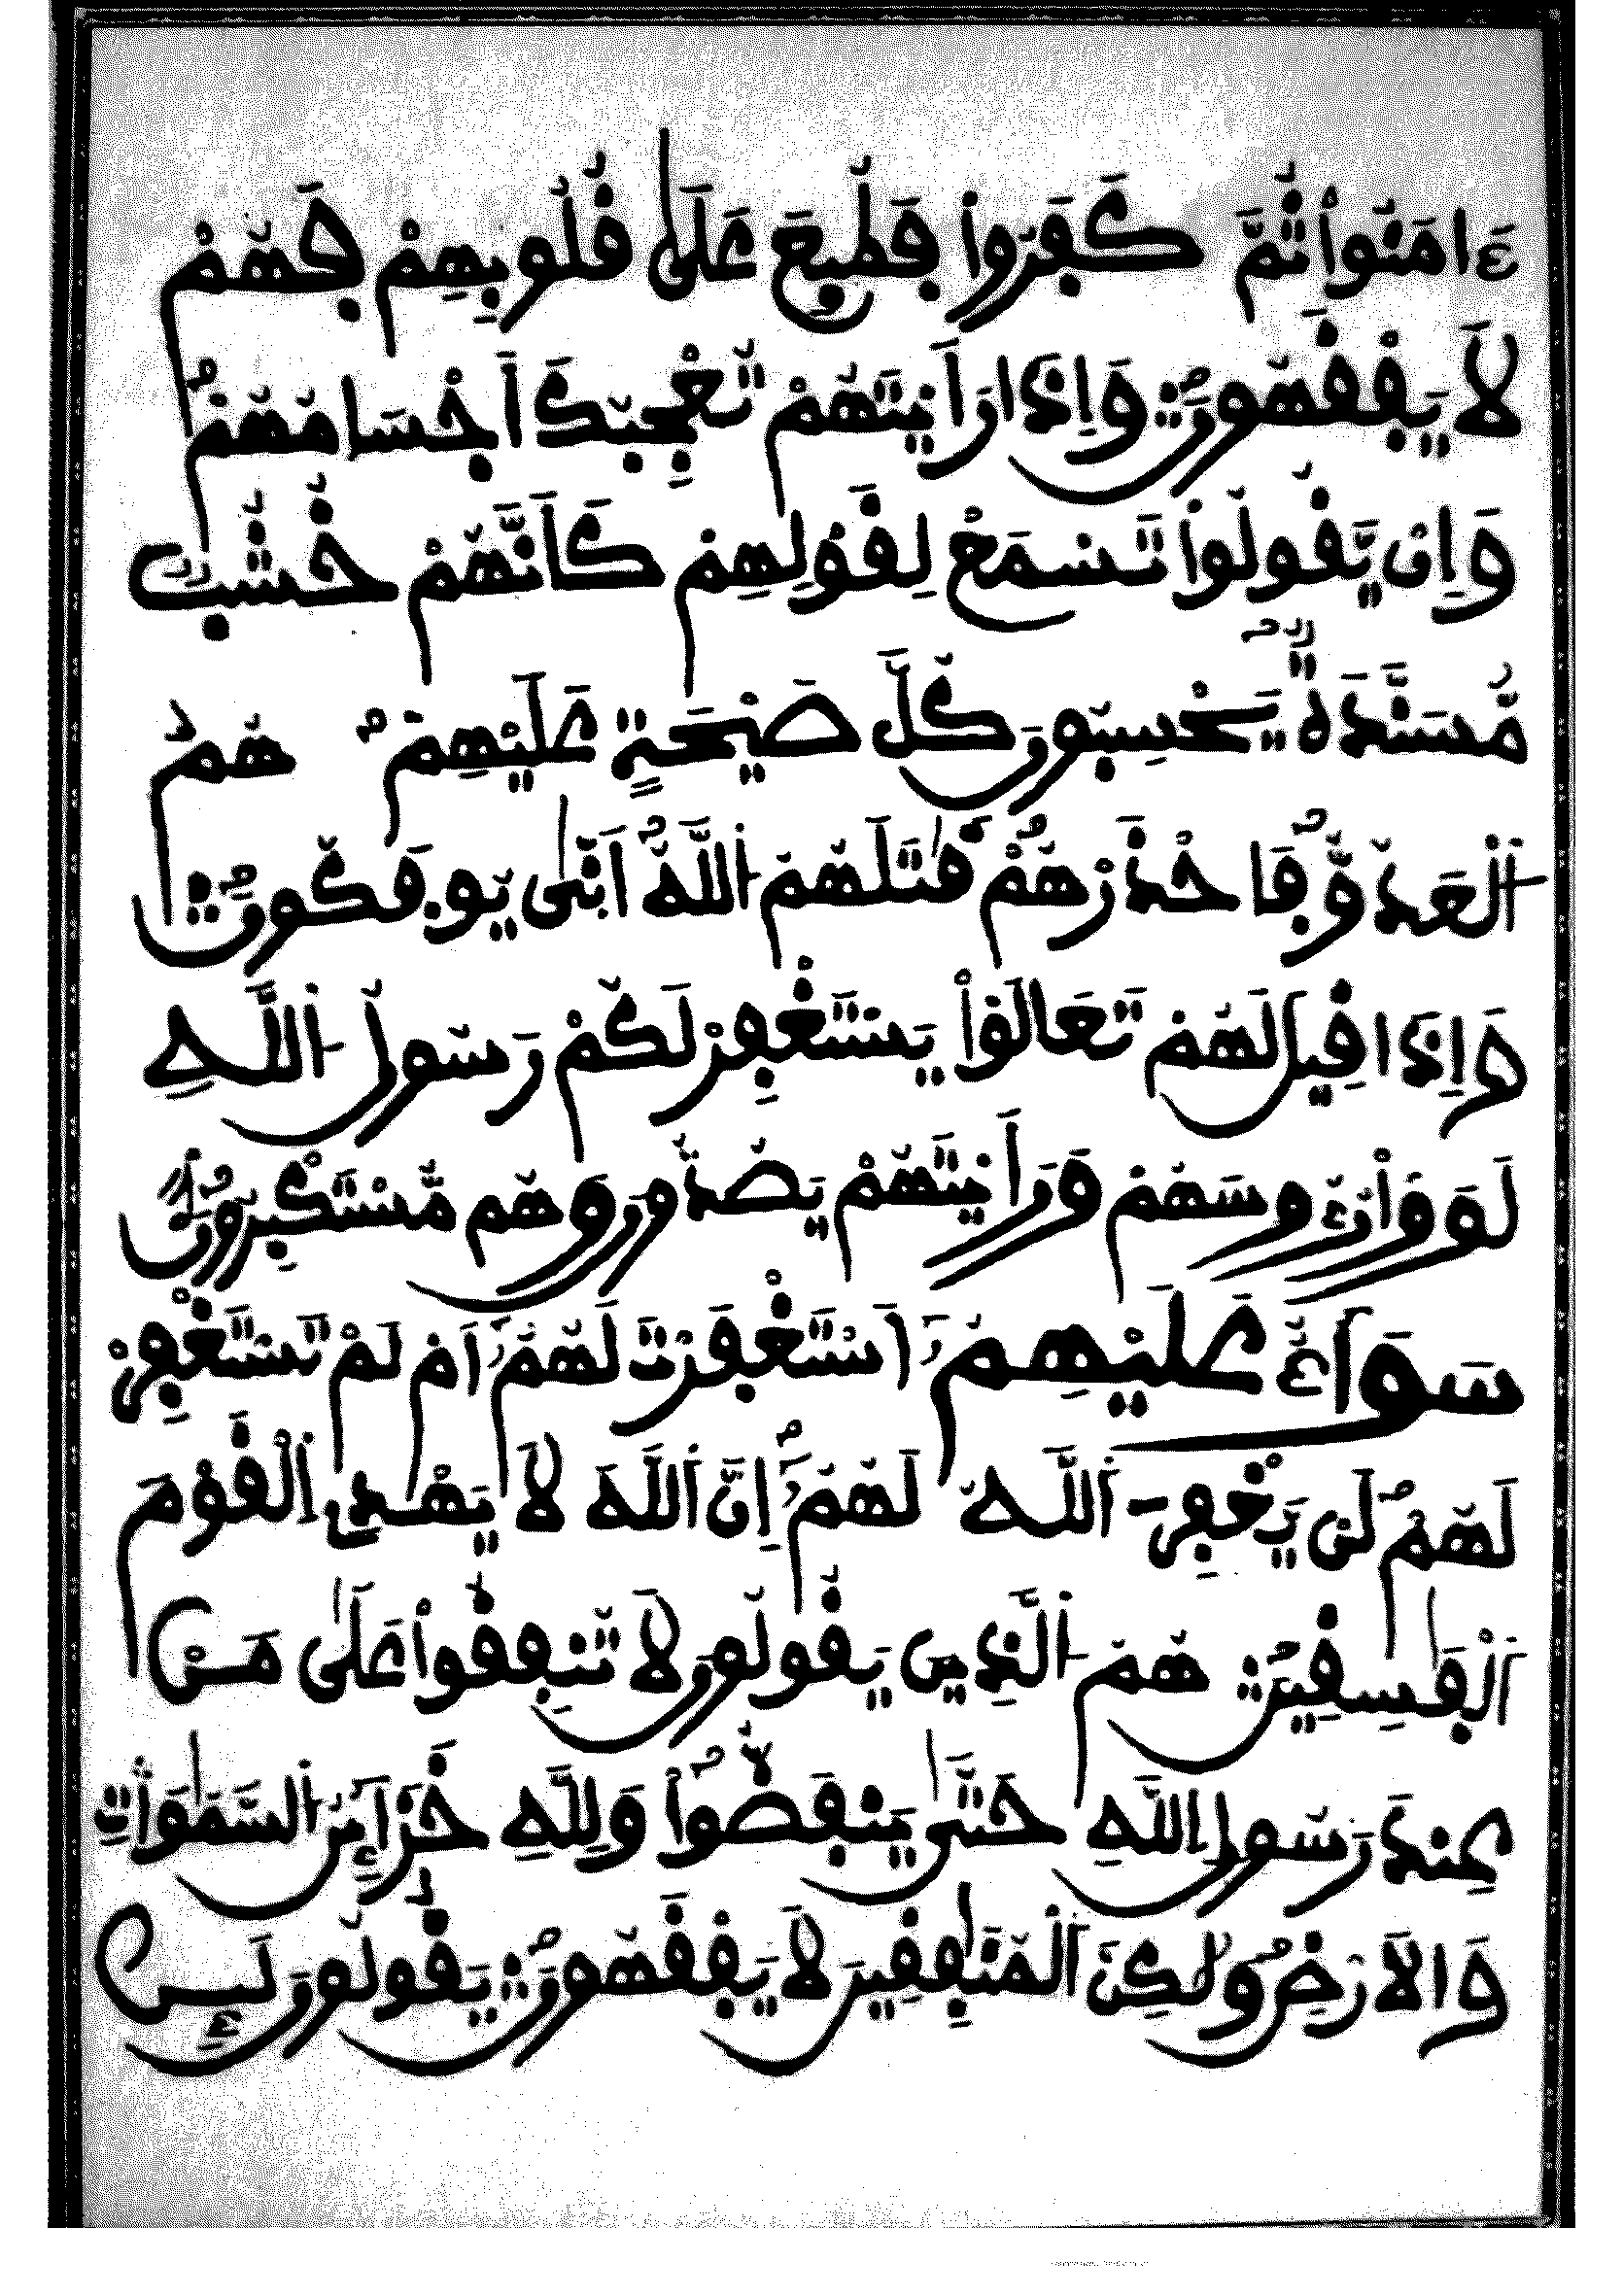 ءَامَنُواْ ثُمَّ كَفَرُواْ فَطُبِعَ عَلَىٰ قُلُوبِهِمْ فَهُمْ
لَا يَفْقَهُونَ وَإِذَا رَأَيْتَهُمْ تُعْجِبُكَ أَجْسَامُهُمْ
وَإِنْ يَّقُولُواْ تَسْمَعْ لِقَوْلِهِمْ كَأَنَّهُمْ خُشُبٌ
مُّسَنَّدَةٌ يَحْسِبُونَ كُلَّ صَيْحَةٍ عَلَيْهِمْ هُمُ
الْعَدُوُّ فَاحْذَرْهُمْ قَٰتَلَهُمُ اللَّهُ أَنَّىٰ يُوفَكُونَ
وَإِذَا قِيلَ لَهُمْ تَعَالَوْاْ يَسْتَغْفِرْ لَكُمْ رَسُولُ اللَّهِ
لَوَوْاْ رُءُوسَهُمْ وَرَأَيْتَهُمْ يَصُدُّونَ وَهُم مُّسْتَكْبِرُونَ
سَوَآءٌ عَلَيْهِمْ أَسْتَغْفَرْتَ لَهُمْ أَمْ لَمْ تَسْتَغْفِرْ
لَهُمْ لَنْ يَّغْفِرَ اللَّهُ لَهُمْ إِنَّ اللَّهَ لَا يَهْدِي الْقَوْمَ
الْفَٰسِقِينَ هُمُ الَّذِينَ يَقُولُونَ لَا تُنفِقُواْ عَلَىٰ مَنْ
عِندَ رَسُولِ اللَّهِ حَتَّىٰ يَنفَضُّواْ وَلِلَّهِ خَزَآئِنُ السَّمَٰوَاتِ
وَالْأَرْضِ وَلَٰكِنَّ الْمُنَٰفِقِينَ لَا يَفْقَهُونَ يَقُولُونَ لَئِن